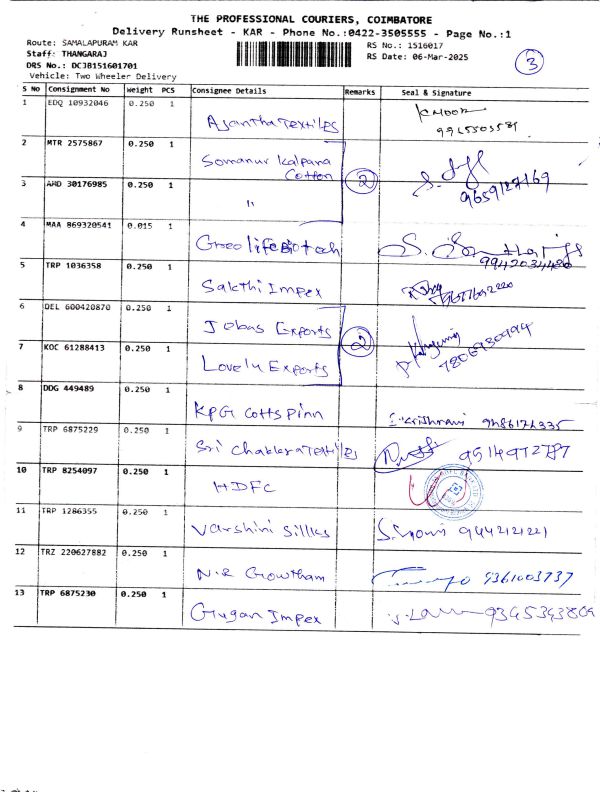 THE PROFESSIONAL COURIERS, COIMBATORE
Delivery Runsheet - KAR - Phone No.:0422-3505555 - Page No.:1
Route: SAMALAPURAM KAR
RS No.: 1516017
Staff: THANGARAJ
RS Date: 06-Mar-2025
3
DRS No.: DCJB151601701
Vehicle: Two Wheeler Delivery
S No Consignment No Weight PCS Consignee Details Remarks Seal & Signature
1 EDQ 10932046 0.250 1 Ajantha Textiles
2 MTR 2575867 0.250 1 Somanur Kalpana Cotton 2 9659127169
3 AHD 30176985 0.250 1 "
4 MAA 869320541 0.015 1 Greolife Biotech 9942034420
5 TRP 1036358 0.250 1 Sakthi Impex
6 DEL 600420870 0.250 1 Jobas Exports 2 7806980994
7 KOC 61288413 0.250 1 Lovely Exports
8 DDG 449489 0.250 1 KPG Cottspinn
9 TRP 6875229 0.250 1 Sri Chakkra Textiles 9514972787
10 TRP 8254097 0.250 1 HDFC
11 TRP 1286355 0.250 1 Varshini Sillks 9442121221
12 TRZ 220627882 0.250 1 N.R Gowtham 9361003737
13 TRP 6875230 0.250 1 Gugan Impex 9345343809